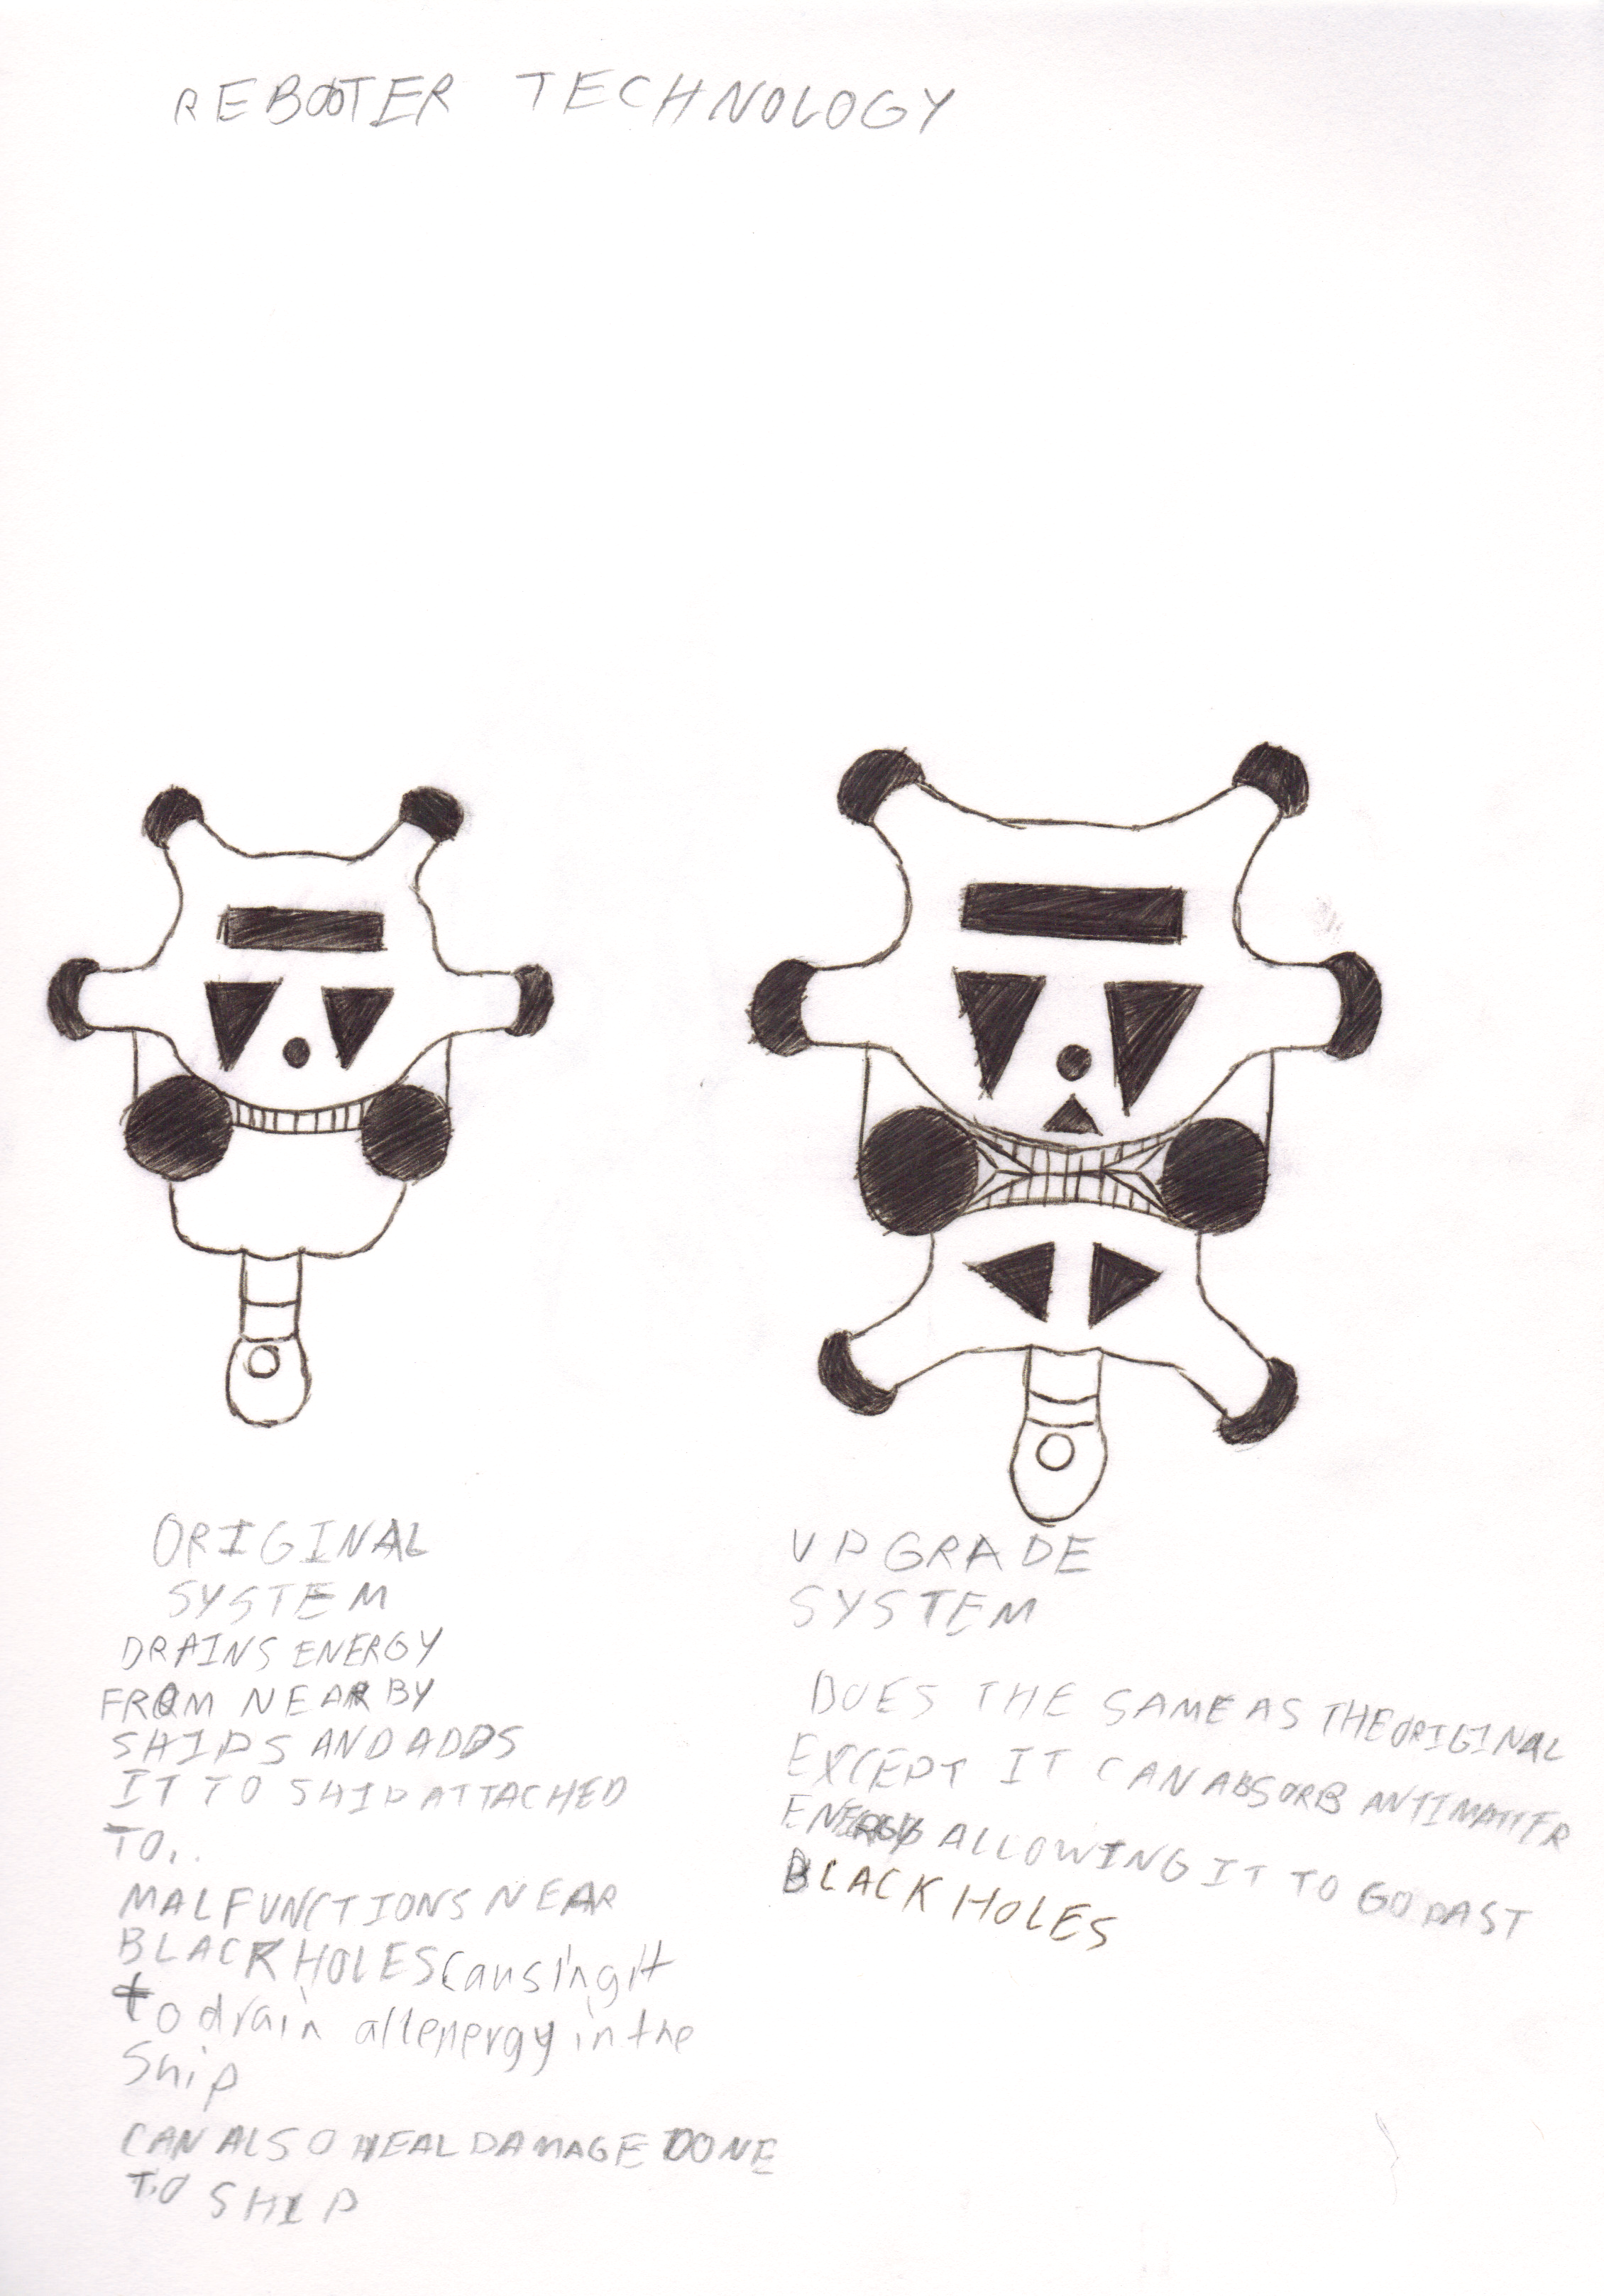 REBOOTER TECHNOLOGY
ORIGINAL
SYSTEM
DRAINS ENERGY
FROM NEARBY
SHIPS AND ADDS
IT TO SHIP ATTACHED
TO..
MALFUNCTIONS NEAR
BLACK HOLES causing it
to drain all energy in the
Ship
CAN ALSO HEAL DAMAGE DONE
TO SHIP
UPGRADE
SYSTEM
DOES THE SAME AS THE ORIGINAL
EXCEPT IT CAN ABSORB ANTIMATTER
ENERGY ALLOWING IT TO GO PAST
BLACK HOLES